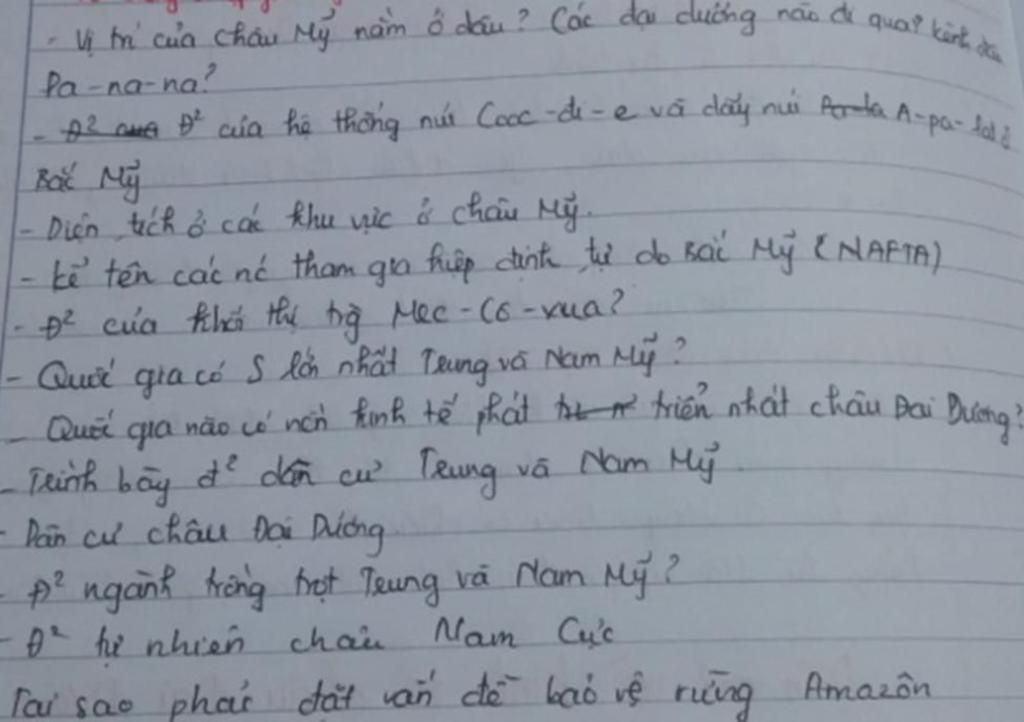 - Vị trí của châu Mỹ nằm ở đâu? Các đại dương nào đi qua? kênh đào
Pa-na-na?
- Đ² của hệ thống núi Cooc-đi-e và dãy núi A-pa-lat ở
Bắc Mỹ
- Diện tích ở các khu vực ở châu Mỹ.
- kể tên các nc tham gia hiệp định tự do Bắc Mỹ (NAFTA)
- Đ² của khối thị trg Mec-Cô-xua?
- Quốc gia có S lớn nhất Trung và Nam Mỹ?
- Quốc gia nào có nền kinh tế phát triển nhất châu Đại Dương?
- Trình bày đ² dân cư Trung và Nam Mỹ.
- Dân cư châu Đại Dương
- Đ² ngành trồng trọt Trung và Nam Mỹ?
- Đ² tự nhiên châu Nam Cực
Tại sao phải đặt vấn đề bảo vệ rừng Amazôn